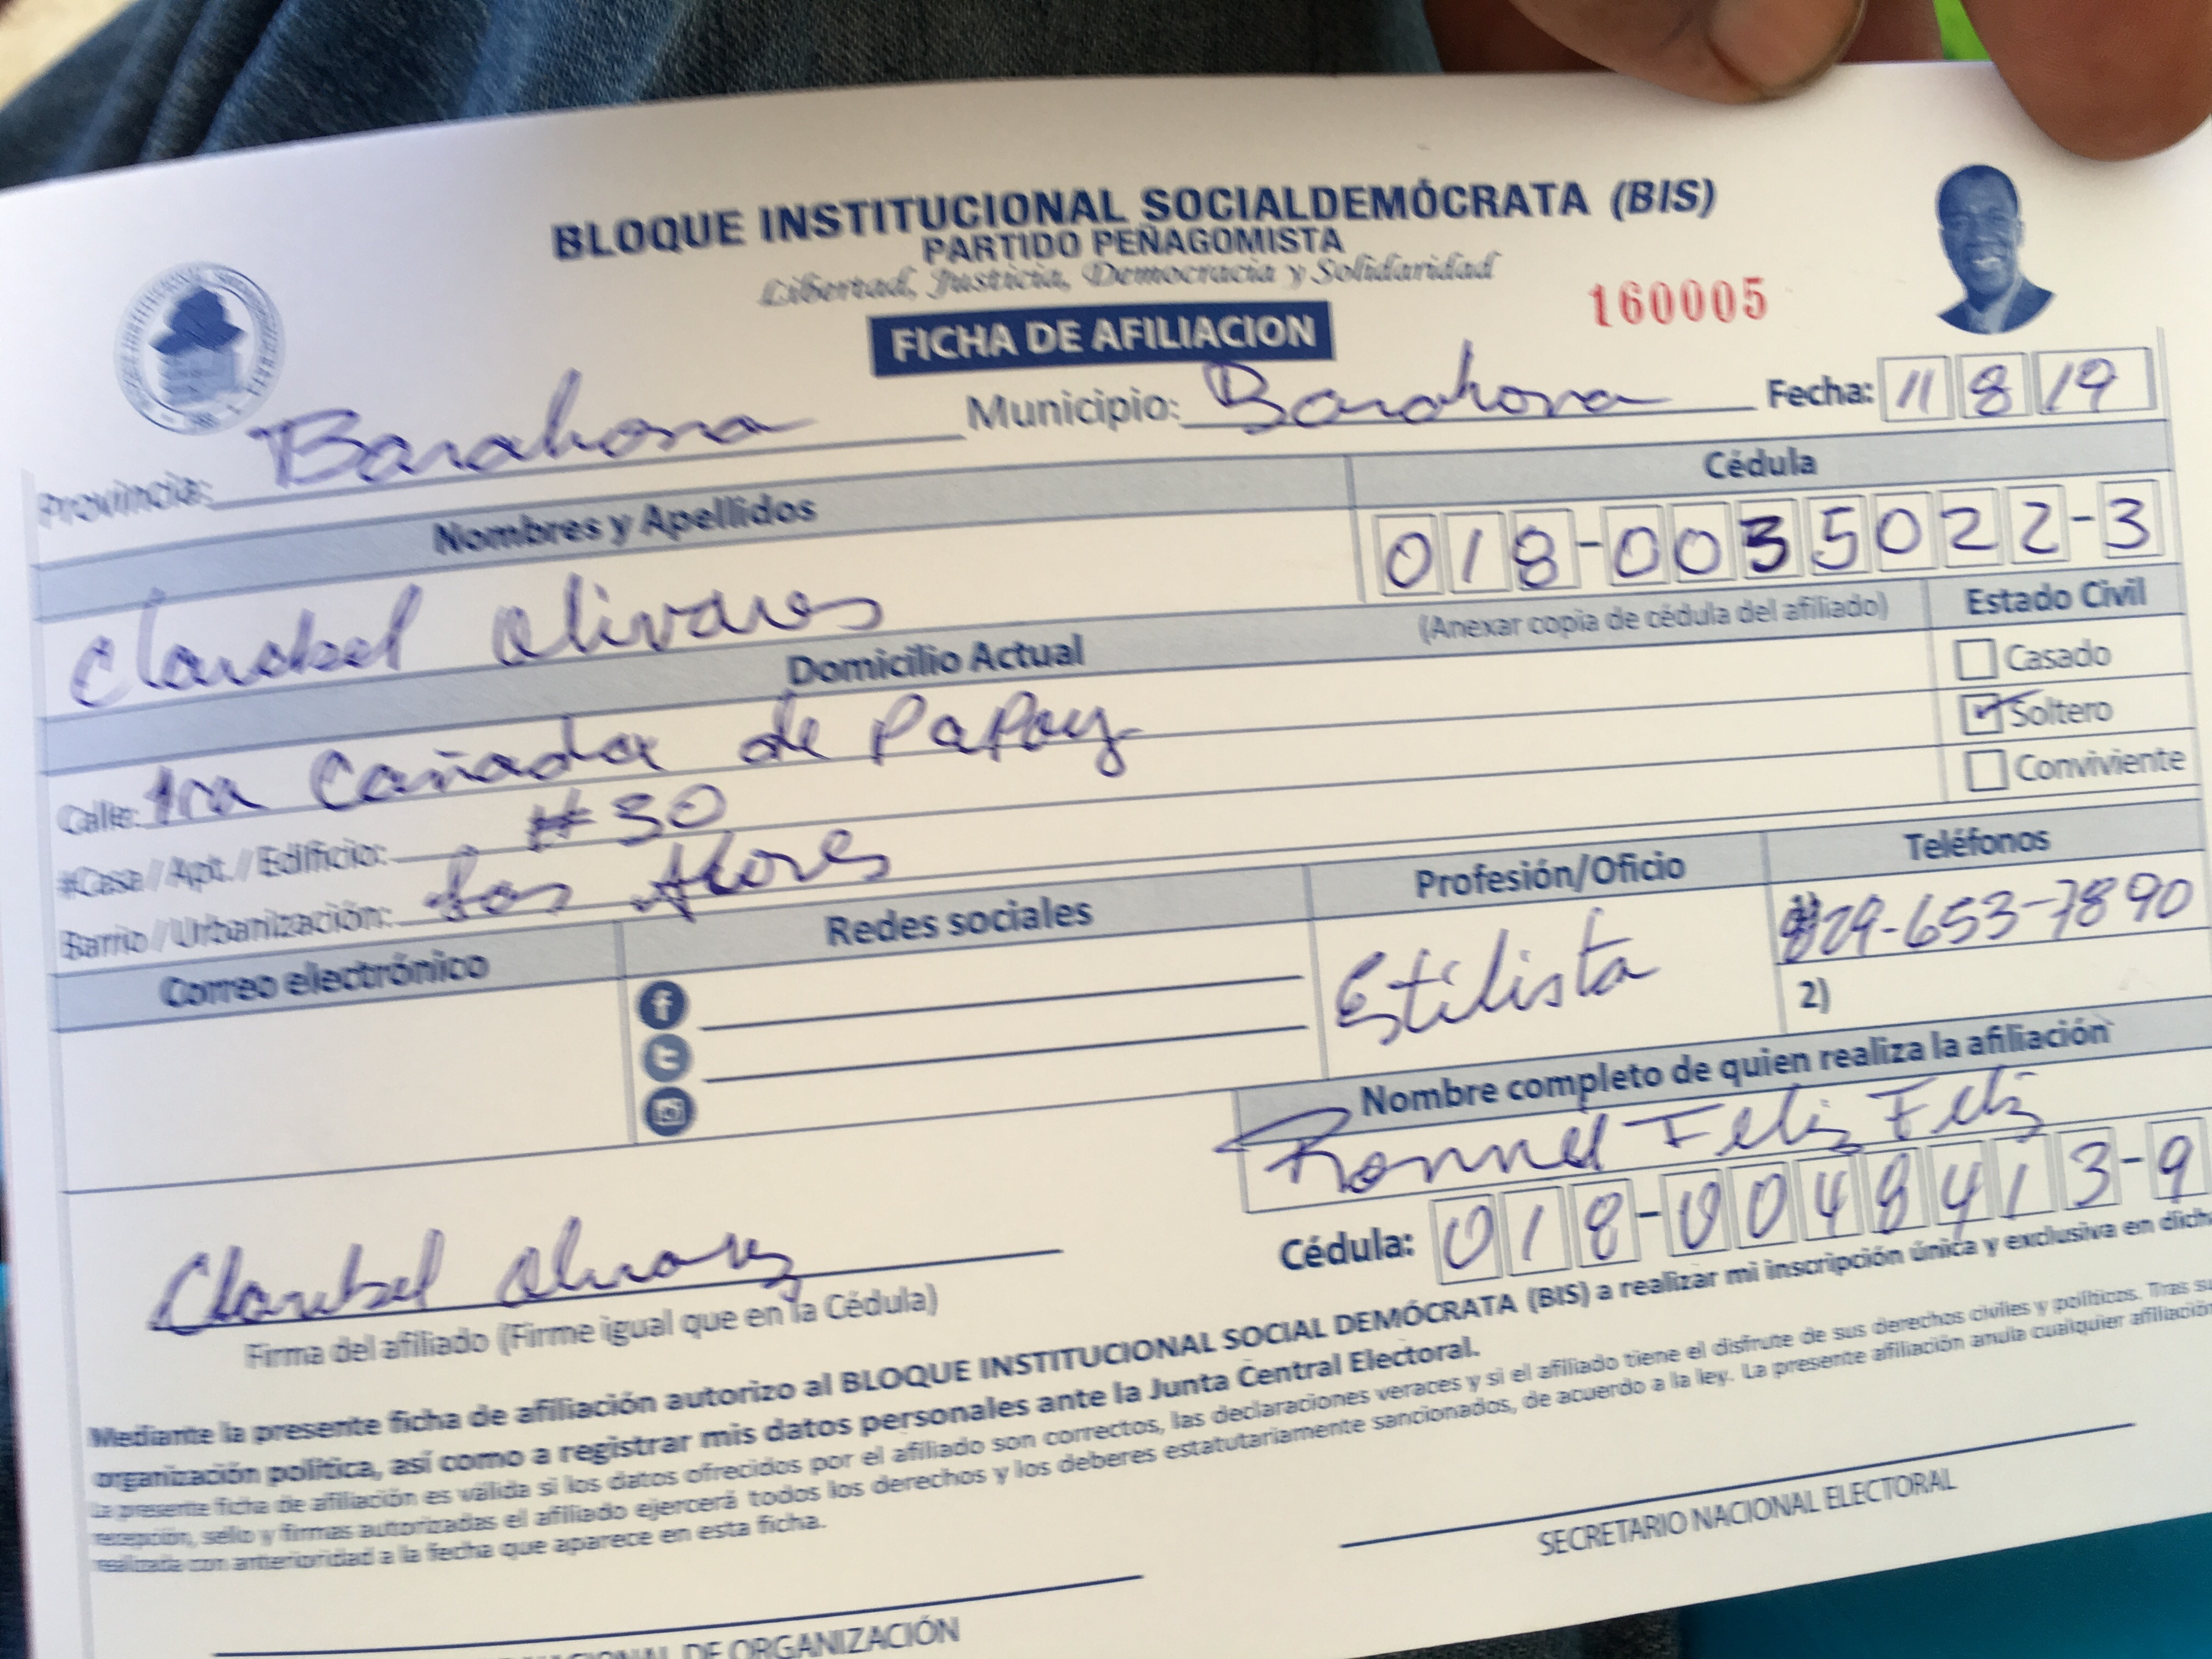 BLOQUE INSTITUCIONAL SOCIALDEMÓCRATA (BIS)
PARTIDO PEÑAGOMISTA
Libertad, Justicia, Democracia y Solidaridad
160005
FICHA DE AFILIACION
Provincia: Barahona Municipio: Barahona Fecha: 11 8 19
Nombres y Apellidos Cédula
Claribel Olivares 018-0035022-3
Domicilio Actual (Anexar copia de cédula del afiliado) Estado Civil
Casado
Calle: 1ra Cañada de Papoy Soltero
#Casa / Apt. / Edificio: #30 Conviviente
Barrio / Urbanización: Los
Correo electrónico Redes sociales Profesión/Oficio Teléfonos
Estilista 829-653-7890
2)
Nombre completo de quien realiza la afiliación
Ronnel Feliz Feliz
Cédula: 018-0048413-9
Claribel Olivares
Firma del afiliado (Firme igual que en la Cédula)
Mediante la presente ficha de afiliación autorizo al BLOQUE INSTITUCIONAL SOCIAL DEMÓCRATA (BIS) a realizar mi inscripción única y exclusiva en dich
organización política, así como a registrar mis datos personales ante la Junta Central Electoral.
La presente ficha de afiliación es válida si los datos ofrecidos por el afiliado son correctos, las declaraciones veraces y si el afiliado tiene el disfrute de sus derechos civiles y políticos. Tras su
recepción, sello y firmas autorizadas el afiliado ejercerá todos los derechos y los deberes estatutariamente sancionados, de acuerdo a la ley. La presente afiliación anula cualquier afiliación
realizada con anterioridad a la fecha que aparece en esta ficha.
SECRETARIO NACIONAL ELECTORAL
NACIONAL DE ORGANIZACIÓN